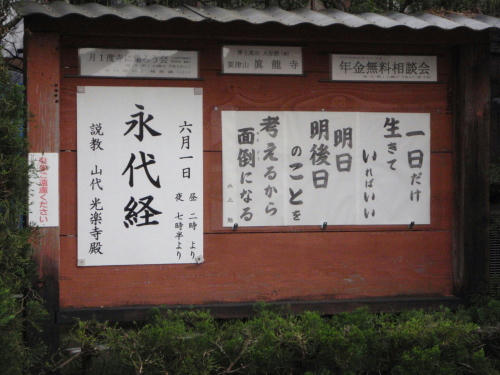 眞龍寺
年金無料相談会
一日だけ
生きて
いればいい
明日
明後日
のことを
考えるから
面倒になる
六月一日
昼 二時 より
夜 七時半より
永代経
説教 山代 光楽寺殿
ご遠慮ください